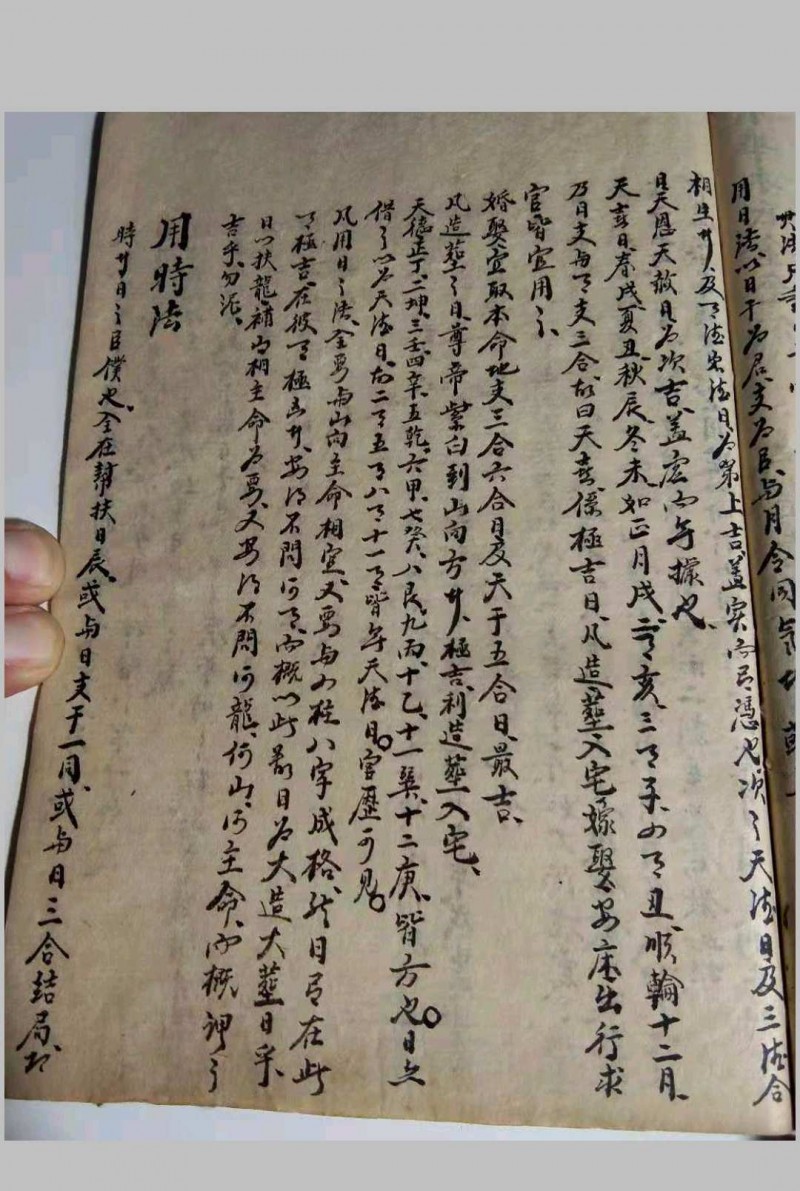 用日法以日干为君支为臣与月令同氣
相生者及月德歲德日为第上吉盖实而有憑也次之天德日及三德合
日天恩天赦日为次吉盖虚而無據也
天喜日春戌夏丑秋辰冬未如正月戌二月亥三月子四月丑順輪十二月
乃日支与月支三合故曰天喜係極吉日凡造塟入宅嫁娶安床出行求
官皆宜用之
婚娶宜取本命地支三合六合日及天干五合日最吉
凡造塟之日尊帝紫白到山向方者極吉利造塟入宅
天德正丁二坤三壬四辛五乾六甲七癸八艮九丙十乙十一巽十二庚皆方也日亦
借之以为天德日故二月五月八月十一月皆無天德日官歷可見
凡用日之法全要与山向主命相宜又要与四柱八字成格然日有在此
月極吉在彼月極凶者安得不問何月而概以此等日为大造大塟日乎
日以扶龍補山相主命为要又安得不問何龍何山何主命而概謂之
吉乎勿泥
用時法
時者日之臣僕也全在幫扶日辰或与日支干一同或与日三合結局